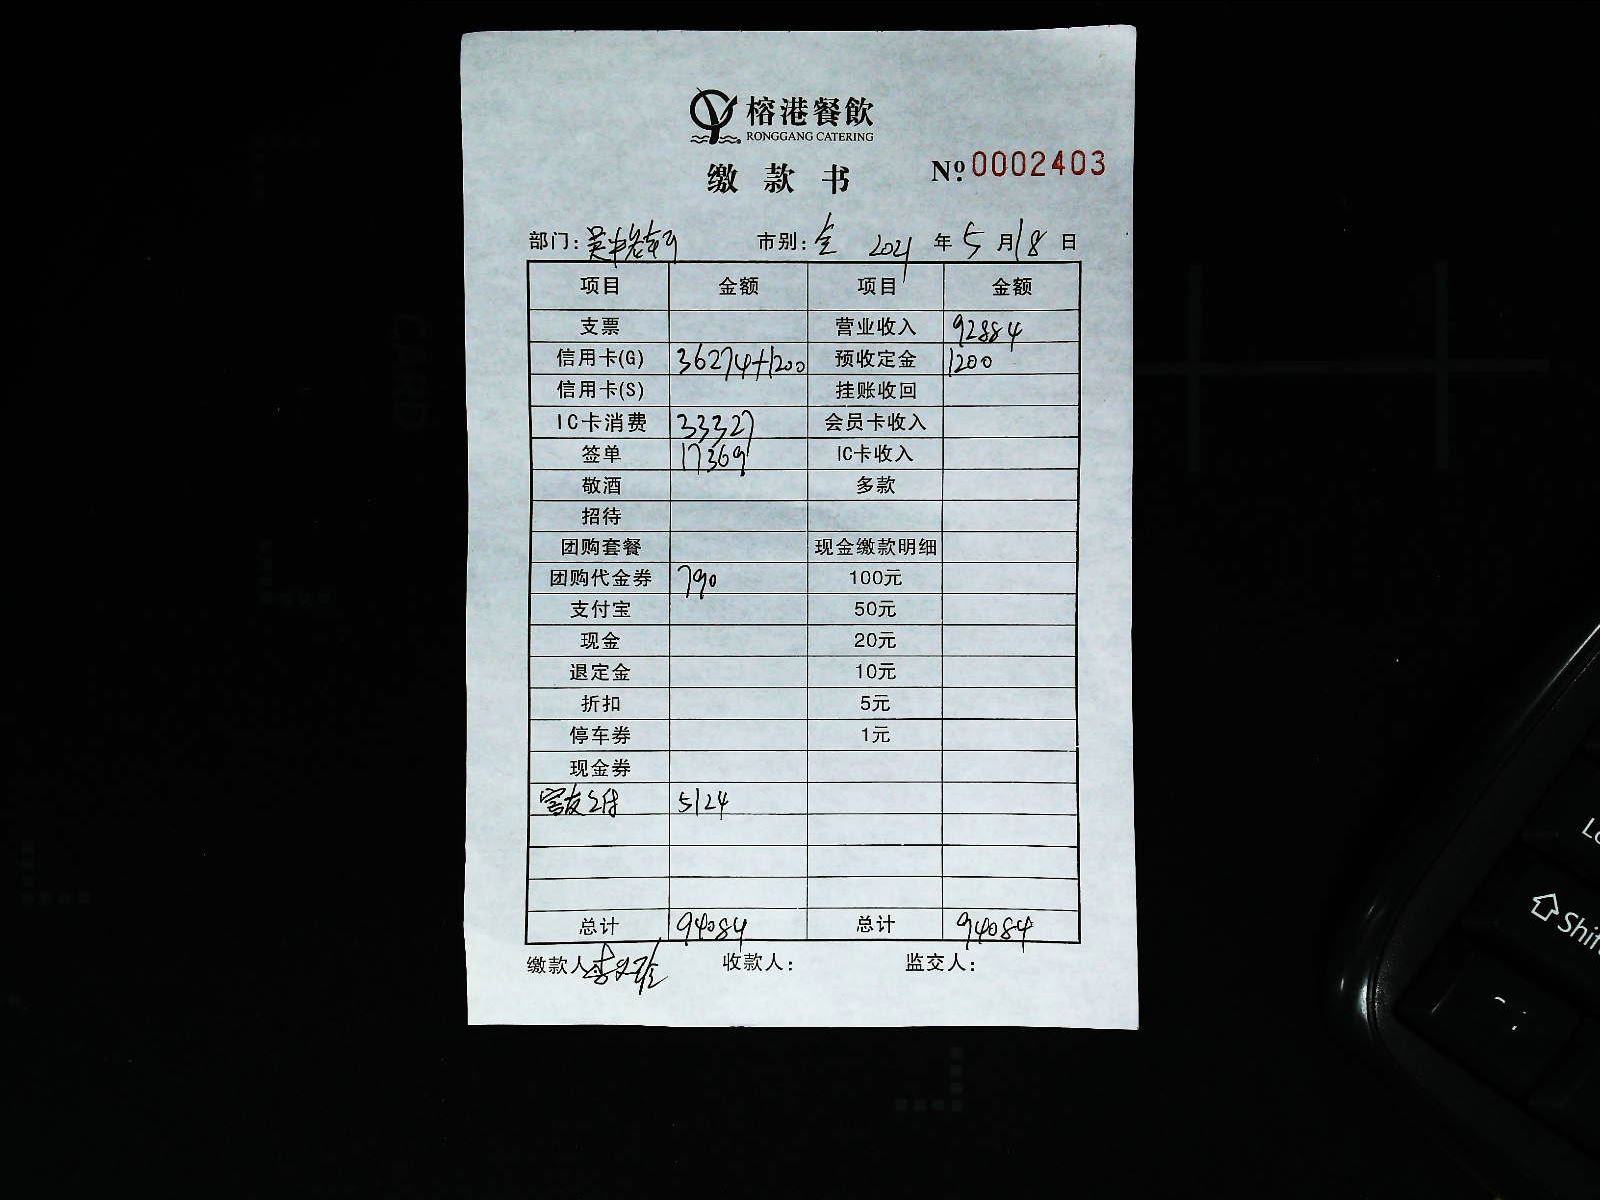 榕港餐飲
RONGGANG CATERING
缴款书 Nº 0002403
部门: 市别: 全 2021 年 5 月 18 日
项目 金额 项目 金额
支票 营业收入 92884
信用卡(G) 36274+1200 预收定金 1200
信用卡(S) 挂账收回
IC卡消费 33327 会员卡收入
签单 17369 IC卡收入
敬酒 多款
招待
团购套餐 现金缴款明细
团购代金券 790 100元
支付宝 50元
现金 20元
退定金 10元
折扣 5元
停车券 1元
现金券
5124
总计 94084 总计 94084
缴款人 收款人: 监交人:
CARD
Shif